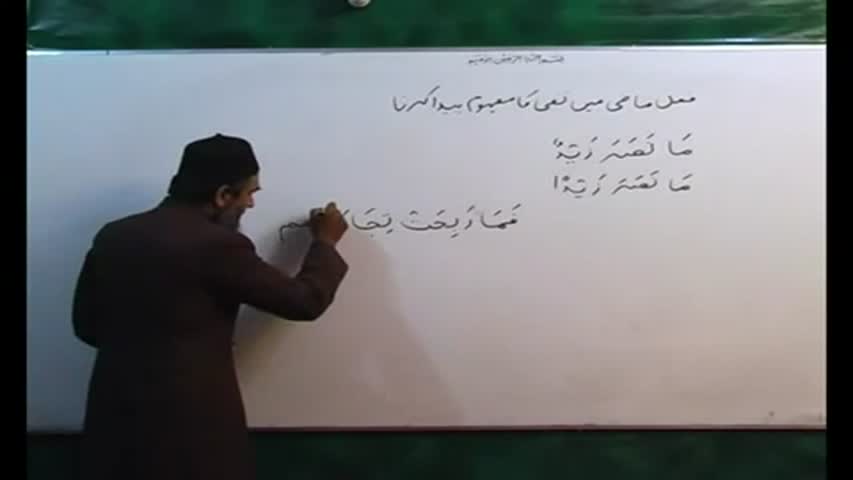 بسم اللہ الرحمن الرحیم
فعل ماضی میں نفی کا مفہوم پیدا کرنا
مَا نَصَرَ زَیْدٌ
مَا نَصَرَ زَیْدًا
فَمَا رَبِحَتْ